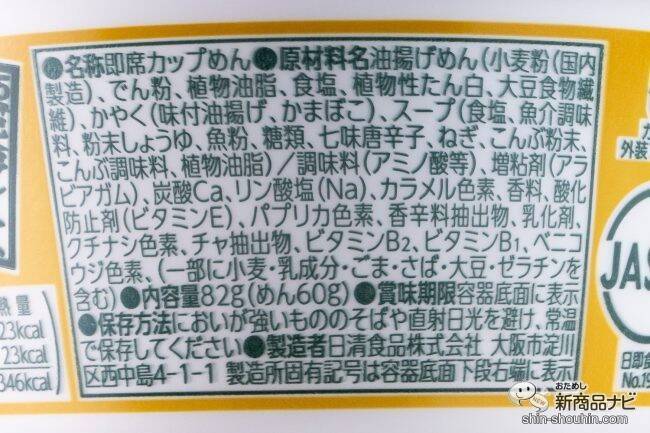 ●名称即席カップめん●原材料名油揚げめん(小麦粉(国内
製造)、でん粉、植物油脂、食塩、植物性たん白、大豆食物繊
維)、かやく(味付油揚げ、かまぼこ)、スープ(食塩、魚介調味
料、粉末しょうゆ、魚粉、糖類、七味唐辛子、ねぎ、こんぶ粉末、
こんぶ調味料、植物油脂)／調味料(アミノ酸等)、増粘剤(アラ
ビアガム)、炭酸Ca、リン酸塩(Na)、カラメル色素、香料、酸化
防止剤(ビタミンE)、パプリカ色素、香辛料抽出物、乳化剤、
クチナシ色素、チャ抽出物、ビタミンB2、ビタミンB1、ベニコ
ウジ色素、(一部に小麦・乳成分・ごま・さば・大豆・ゼラチンを
含む)●内容量82g(めん60g)●賞味期限容器底面に表示
●保存方法においが強いもののそばや直射日光を避け、常温
で保存してください●製造者日清食品株式会社 大阪市淀川
区西中島4-1-1 製造所固有記号は容器底面下段右端に表示
熱量
23kcal
23kcal
346kcal
外装
JAS
日即食
No.19
おためし
NEW
新商品ナビ
shin-shouhin.com